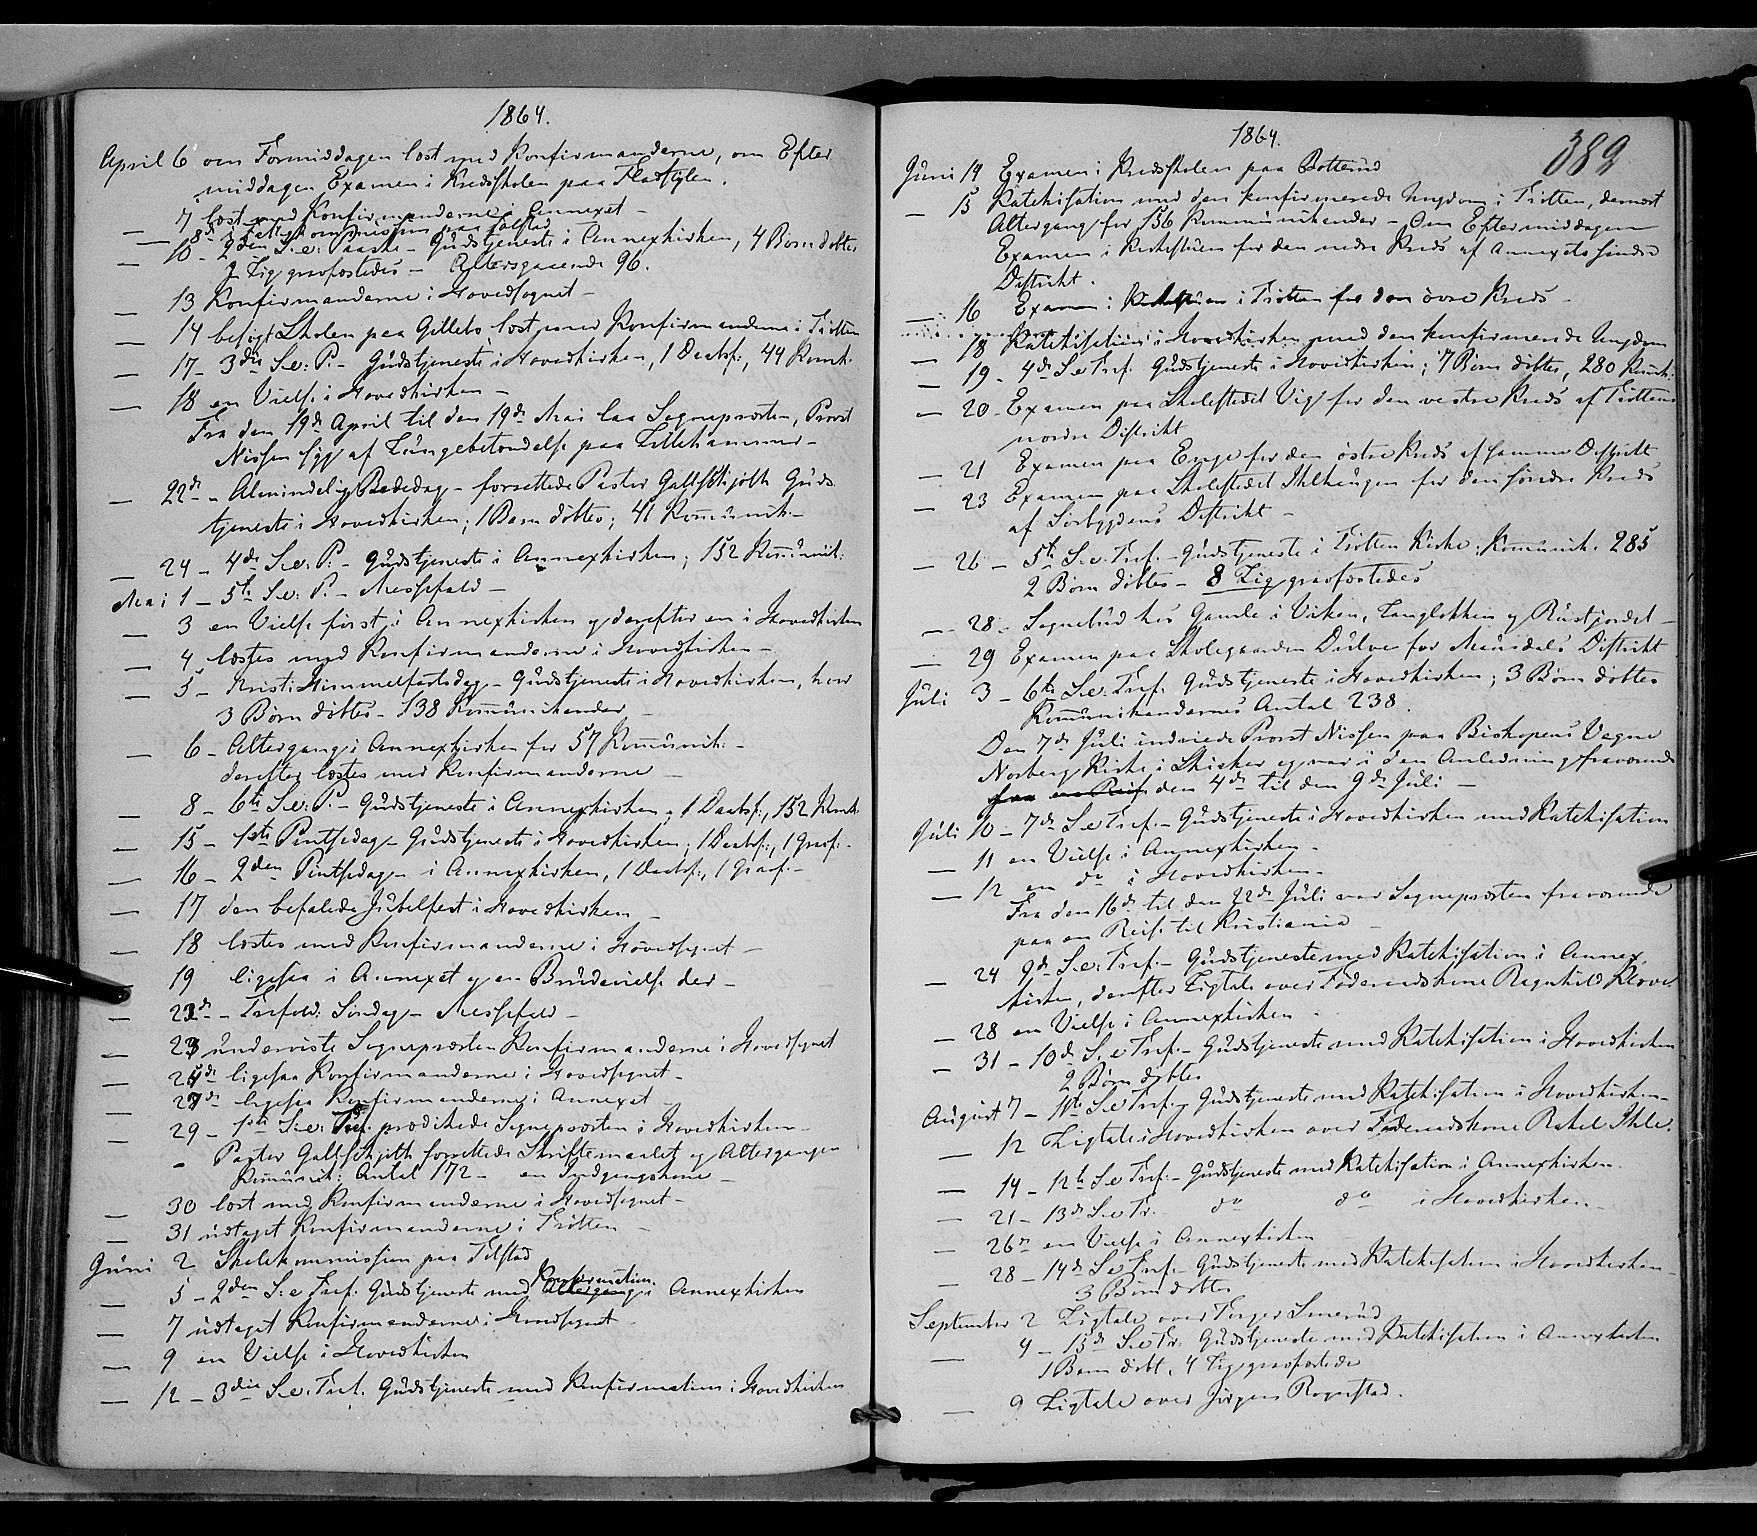 1864.
April 6 om Formiddagen læst med Konfirmanderne, om Efter
middagen Examen i Kredsskolen paa Fladstylen.
— 7 læst med Konfirmanderne i Annexet —
— 8de paa Tolstad
— 10 - 2den S. e. Paaske - Gudstjeneste i Annexkirken, 4 Børn døbtes
2 Lig gravfæstedes - Altersgaaende 96.
— 13 Konfirmanderne i Hovedsognet —
— 14 besøgt Skolen paa Gillebo læst med Konfirmanderne i Tretten
— 17 - 3die S. e. P. - Gudstjeneste i Hovedkirken, 1 Daabsf., 44 Komk.
— 18 en Vielse i Hovedkirken —
Fra den 19de April til den 19de Mai laa Sognepræsten, Provst
Nissen syg af Lungebetændelse paa Lillehammer —
— 22de - Almindelig Bededag - forrettede Pastor Gallschjøth Guds
tjeneste i Hovedkirken; 1 Barn døbtes; 41 Kommunik. —
— 24 - 4de S. e. P. - Gudstjeneste i Annexkirken; 152 Kommunik.
Mai 1 - 5te S. e. P. - Messefald —
— 3 en Vielse først i Annexkirken og derefter en i Hovedkirken
— 4 læstes med Konfirmanderne i Hovedkirken —
— 5 - Kristi Himmelfartsdag - Gudstjeneste i Hovedkirken, hvor
3 Børn døbtes - 138 Kommunikander —
— 6 - Altergang i Annexkirken for 57 Kommunik. -
derefter læstes med Konfirmanderne —
— 8 - 6te S. e. P. - Gudstjeneste i Annexkirken, 1 Daabsf., 152 Komk
— 15 - 1ste Pintsedag - Gudstjeneste i Hovedkirken, 1 Daabsf., 1 Gravf. -
— 16 - 2den Pintsedag - i Annexkirken, 1 Daabsf., 1 Gravf. -
— 17 den befalede Jubelfest i Hovedkirken —
— 18 læstes med Konfirmanderne i Hovedsognet —
— 19 ligesaa i Annexet og en Brudevielse der —
— 22de - Trefold: Søndag - Messefald —
— 23 underviste Sognepræsten Konfirmanderne i Hovedsognet
— 25de ligesaa Konfirmanderne i Hovedsognet -
— 27de ligesaa Konfirmanderne i Annexet —
— 29 - 1ste S. e. Tref. prædikede Sognepræsten i Hovedkirken -
- Pastor Gallschjøth forrettede Skriftemaalet og Altergangen
Kommunik: Antal 172 - en Indgangskone —
— 30 læst med Konfirmanderne i Hovedsognet -
— 31 udtaget Konfirmanderne i Tretten —
Juni 2 Skolekommission paa Tolstad
Konfirmation.
— 5 - 2den S. e. Tref. Gudstjeneste med Altergang i Annexkirken
— 7 udtaget Konfirmanderne i Hovedsognet -
— 9 en Vielse i Hovedkirken
— 12 - 3die S. e. Tref. Gudstjeneste med Konfirmation i Hovedkirken
1864.
382
Juni 14 Examen i Kredsskolen paa Botterud
— 15 Katekisation med den konfirmerede Ungdom i Tretten, dernæst
Altergang for 156 Kommunikander - Om Eftermiddagen
Examen i Kirkestuen for den nedre Kreds af Annexets søndre
Distrikt.
— 16 Examen i i Tretten for den øvre Kreds -
— 18 Katekisation i Hovedkirken med den konfirmerede Ungdom
— 19 - 4de S. e. Tref. Gudstjeneste i Hovedkirken; 7 Børn døbtes, 280 Komk.
— 20 - Examen paa Skolestedet Vig for den vestre Kreds af Trettens
nordre Distrikt
— 21 Examen paa Enge for den østre Kreds af samme Distrikt
— 23 Examen paa Skolestedet Ihlhaugen for den søndre Kreds
af Sørbygdens Distrikt —
— 26 - 5te S. e. Tref. - Gudstjeneste i Tretten Kirke. Kommunik. 285
2 Børn døbtes - 8 Lig gravfæstedes
— 28 - Sognebud hos Gamle i Viken, Langløkken og Rustjordet -
— 29 Examen paa Skolegaarden Dulven for Musdals Distrikt
Juli 3 - 6te S. e. Tref. Gudstjeneste i Hovedkirken; 3 Børn døbtes
Kommunikandernes Antal 238.
Den 7de Juli indviede Provst Nissen paa Biskopens Vegne
Norberg Kirke i Skiaker og var i den Anledning fraværende
fra den 4de til den 9de Juli —
Juli 10 - 7de S. e. Tref. - Gudstjeneste i Hovedkirken med Katekisation
— 11 en Vielse i Annexkirken -
— 12 en do i Hovedkirken -
Fra den 16de til den 22de Juli var Sognepræsten fraværende
paa en Reise til Kristiania —
— 24 9de S. e. Tref. - Gudstjeneste med Katekisation i Annex,
kirken, derefter Ligtale over Føderaadskone Ragnhild
— 28 en Vielse i Annexkirken -
— 31 - 10de S. e. Tref. - Gudstjeneste med Katekisation i Hovedkirken
2 Børn døbtes
August 7 - 11te S. e. Tref. - Gudstjeneste med Katekisation i Hovedkirken -
— 12 Ligtale i Hovedkirken over Føderaadskone Rakel Ihle.
— 14 - 12te S. e. Tref. - Gudstjeneste med Katekisation i Annexkirken.
— 21 - 13de S. e. Tr. do do i Hovedkirken -
— 26de en Vielse i Annexkirken
— 28 - 14de S. e. Tref. - Gudstjeneste med Katekisation i Hovedkirken —
3 Børn døbtes
September 2 Ligtale over Torger Smerud
— 4 - 15de S. e. Tr. Gudstjeneste med Katekisation i Annexkirken
1 Barn døbt, 4 Lig gravfæstede
— 9 Ligtale over Jørgen Rognstad.